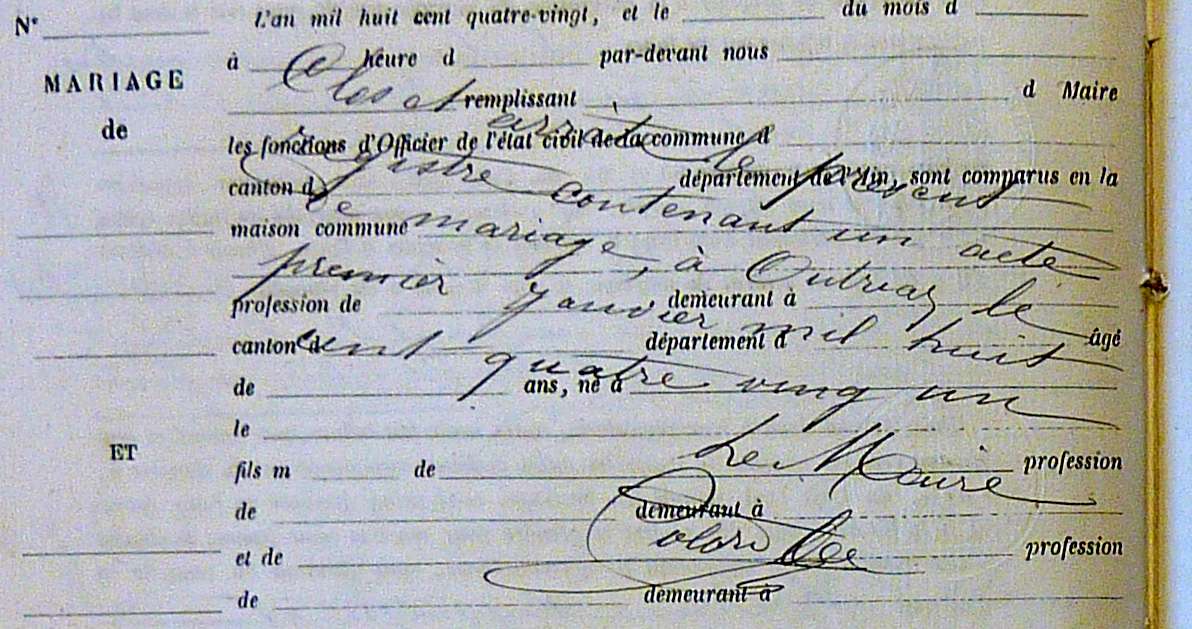 N°
L'an mil huit cent quatre-vingt, et le du mois d
à heure d par-devant nous
MARIAGE
Clos et remplissant d Maire
de
arrêté
les fonctions d'Officier de l'état civil de la commune d
registre le présent
canton d département de l'Ain, sont comparus en la
contenant un acte
maison commune
de mariage, à Outriaz le
profession de demeurant à
premier janvier mil huit âgé
canton d département d
cent quatre ving un
de ans, né à
le
Le Maire
ET
fils m de profession
de demeurant à
et de profession
de demeurant à